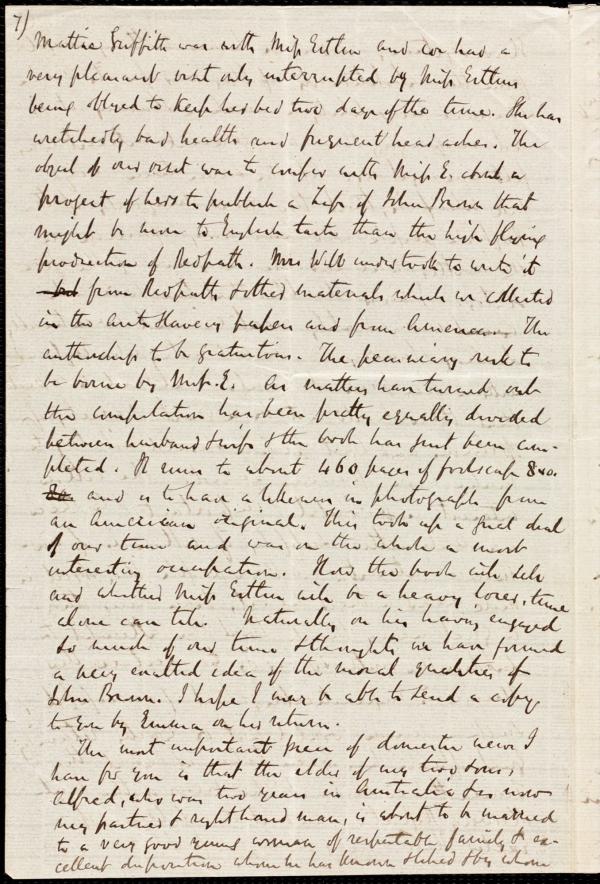 7)
Mattie Griffith was with Miss Estlin and we had a
very pleasant visit only interrupted by Miss Estlin's
being obliged to keep her bed two days of the time. She has
wretchedly bad health and frequent head aches. The
object of our visit was to confer with Miss E. about a
project of hers to publish a Life of John Brown that
might be more to English taste than the high flying
production of Redpath. Mrs Webb undertook to write it
from Redpath & other materials which we collected
in the Anti Slavery papers and from America. The
authorship to be gratuitous. The pecuniary risk to
be borne by Miss. E. As matters have turned out
the compilation has been pretty equally divided
between husband & wife & the book has just been com-
pleted. It runs to about 460 pages of foolscap 8vo.
and is to have a likeness in photograph from
an American original. This took up a great deal
of our time and was on the whole a most
interesting occupation. How the book will sell
and whether Miss Estlin will be a heavy loser, time
alone can tell. Naturally on his having engaged
so much of our time & thoughts we have formed
a very exalted idea of the moral qualities of
John Brown. I hope I may be able to send a copy
to you by Emma on her return.
The most important piece of domestic news I
have for you is that the elder of my two sons,
Alfred, who was two years in Australia & is now
my partner & right hand man, is about to be married
to a very good young woman of respectable family & ex-
cellent disposition whom he has known & liked & by whom